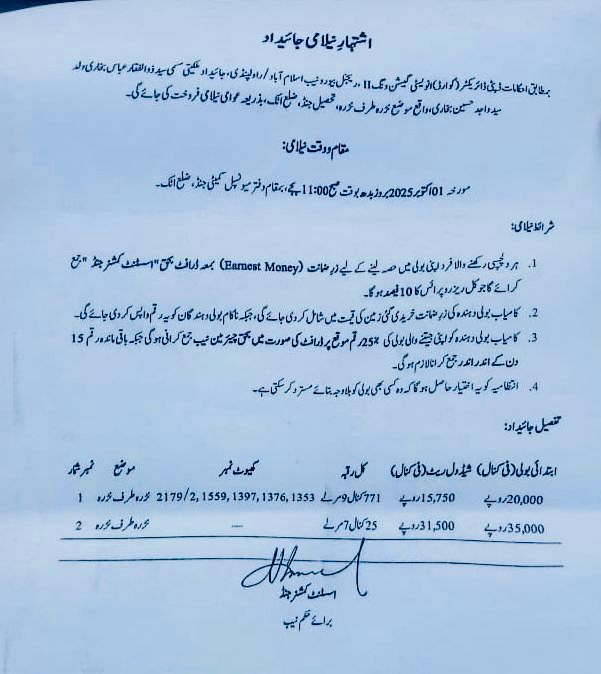 اشتہارِ نیلامی جائیداد
بمطابق احکامات ڈپٹی ڈائریکٹر (کوارڈ) انویسٹی گیشن ونگ II، ریجنل بیورو نیب اسلام آباد/راولپنڈی، جائیداد ملکیتی مسمی سید ذوالفقار عباس بخاری ولد
سید واجد حسین بخاری، واقع موضع نزہ طرف نزہ، تحصیل جنڈ، ضلع اٹک، بذریعہ عوامی نیلامی فروخت کی جائے گی۔
مقام و وقت نیلامی:
مورخہ 01 اکتوبر 2025 بروز بدھ بوقت صبح 11:00 بجے، بمقام دفتر میونسپل کمیٹی جنڈ، ضلع اٹک۔
شرائط نیلامی:
1. ہر دلچسپی رکھنے والا فرد اپنی بولی میں حصہ لینے کے لیے زرِ ضمانت (Earnest Money) بمعہ ڈرافٹ بحق "اسسٹنٹ کمشنر جنڈ" جمع
کرائے گا جو کل ریزرو پرائس کا 10 فیصد ہوگا۔
2. کامیاب بولی دہندہ کی زرِ ضمانت خریدی گئی زمین کی قیمت میں شامل کر دی جائے گی، جبکہ ناکام بولی دہندگان کو یہ رقم واپس کر دی جائے گی۔
3. کامیاب بولی دہندہ کو اپنی جیتنے والی بولی کی 25% رقم موقع پر ڈرافٹ کی صورت میں بحق چیئرمین نیب جمع کرانی ہوگی جبکہ باقی ماندہ رقم 15
دن کے اندر اندر جمع کرانا لازم ہوگی۔
4. انتظامیہ کو یہ اختیار حاصل ہوگا کہ وہ کسی بھی بولی کو بلا وجہ بتائے مسترد کر سکتی ہے۔
تفصیل جائیداد:
نمبر شمار موضع کھیوٹ نمبر کل رقبہ شیڈول ریٹ (فی کنال) ابتدائی بولی (فی کنال)
1 نزہ طرف نزہ 2179/2, 1559, 1397, 1376, 1353 771 کنال 9 مرلے 15,750 روپے 20,000 روپے
2 نزہ طرف نزہ — 25 کنال 7 مرلے 31,500 روپے 35,000 روپے
اسسٹنٹ کمشنر جنڈ
برائے حکم نیب